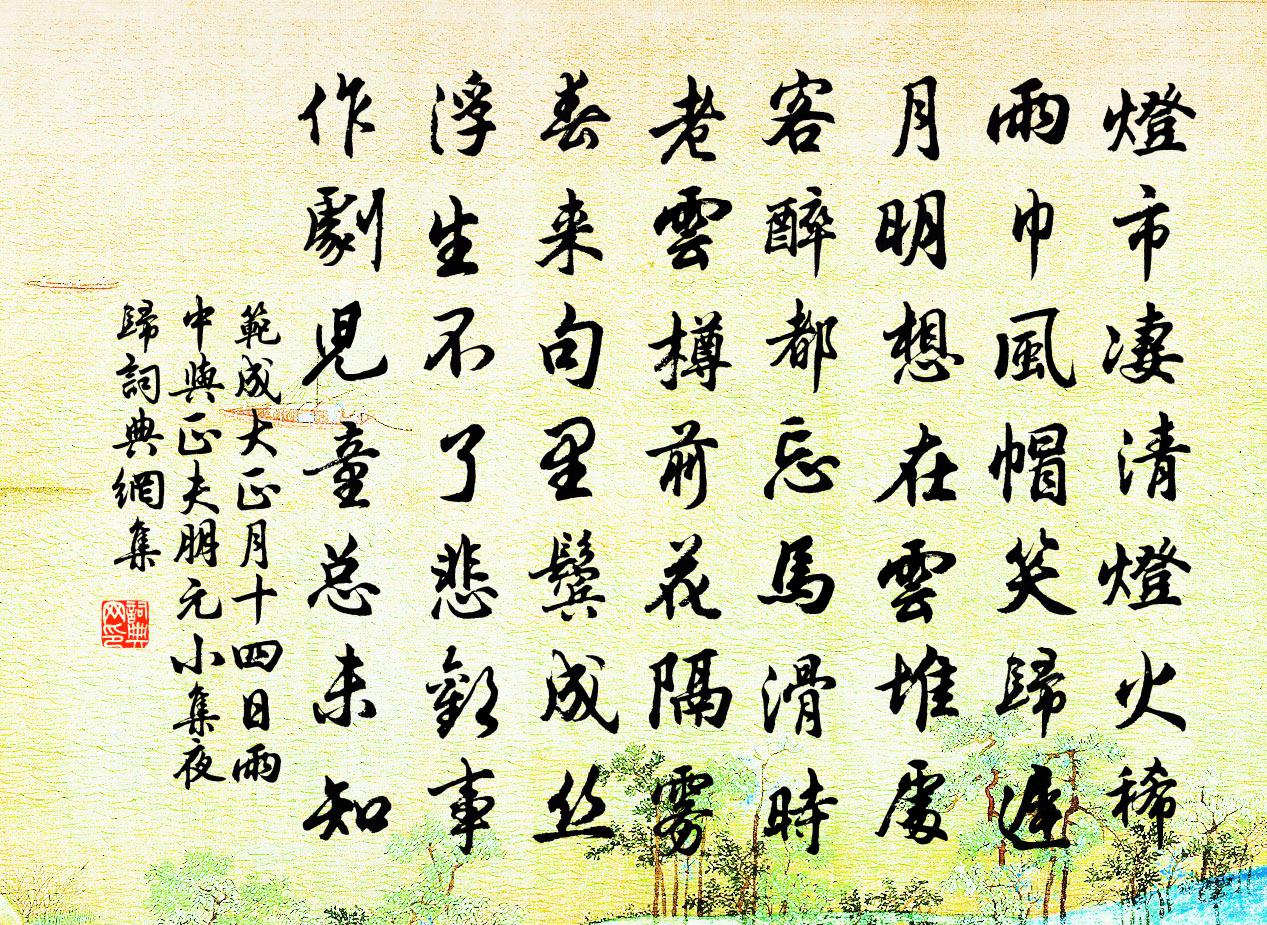 燈市凄清燈火稀
雨巾風帽笑歸遲
月明想在雲堆處
客醉都忘馬滑時
老雲樽前花隔霧
春来句里鬢成丝
浮生不了悲歡事
作劇児童总未知
範成大正月十四日雨
中與正夫朋元小集夜
歸詞典網集
詞典网印